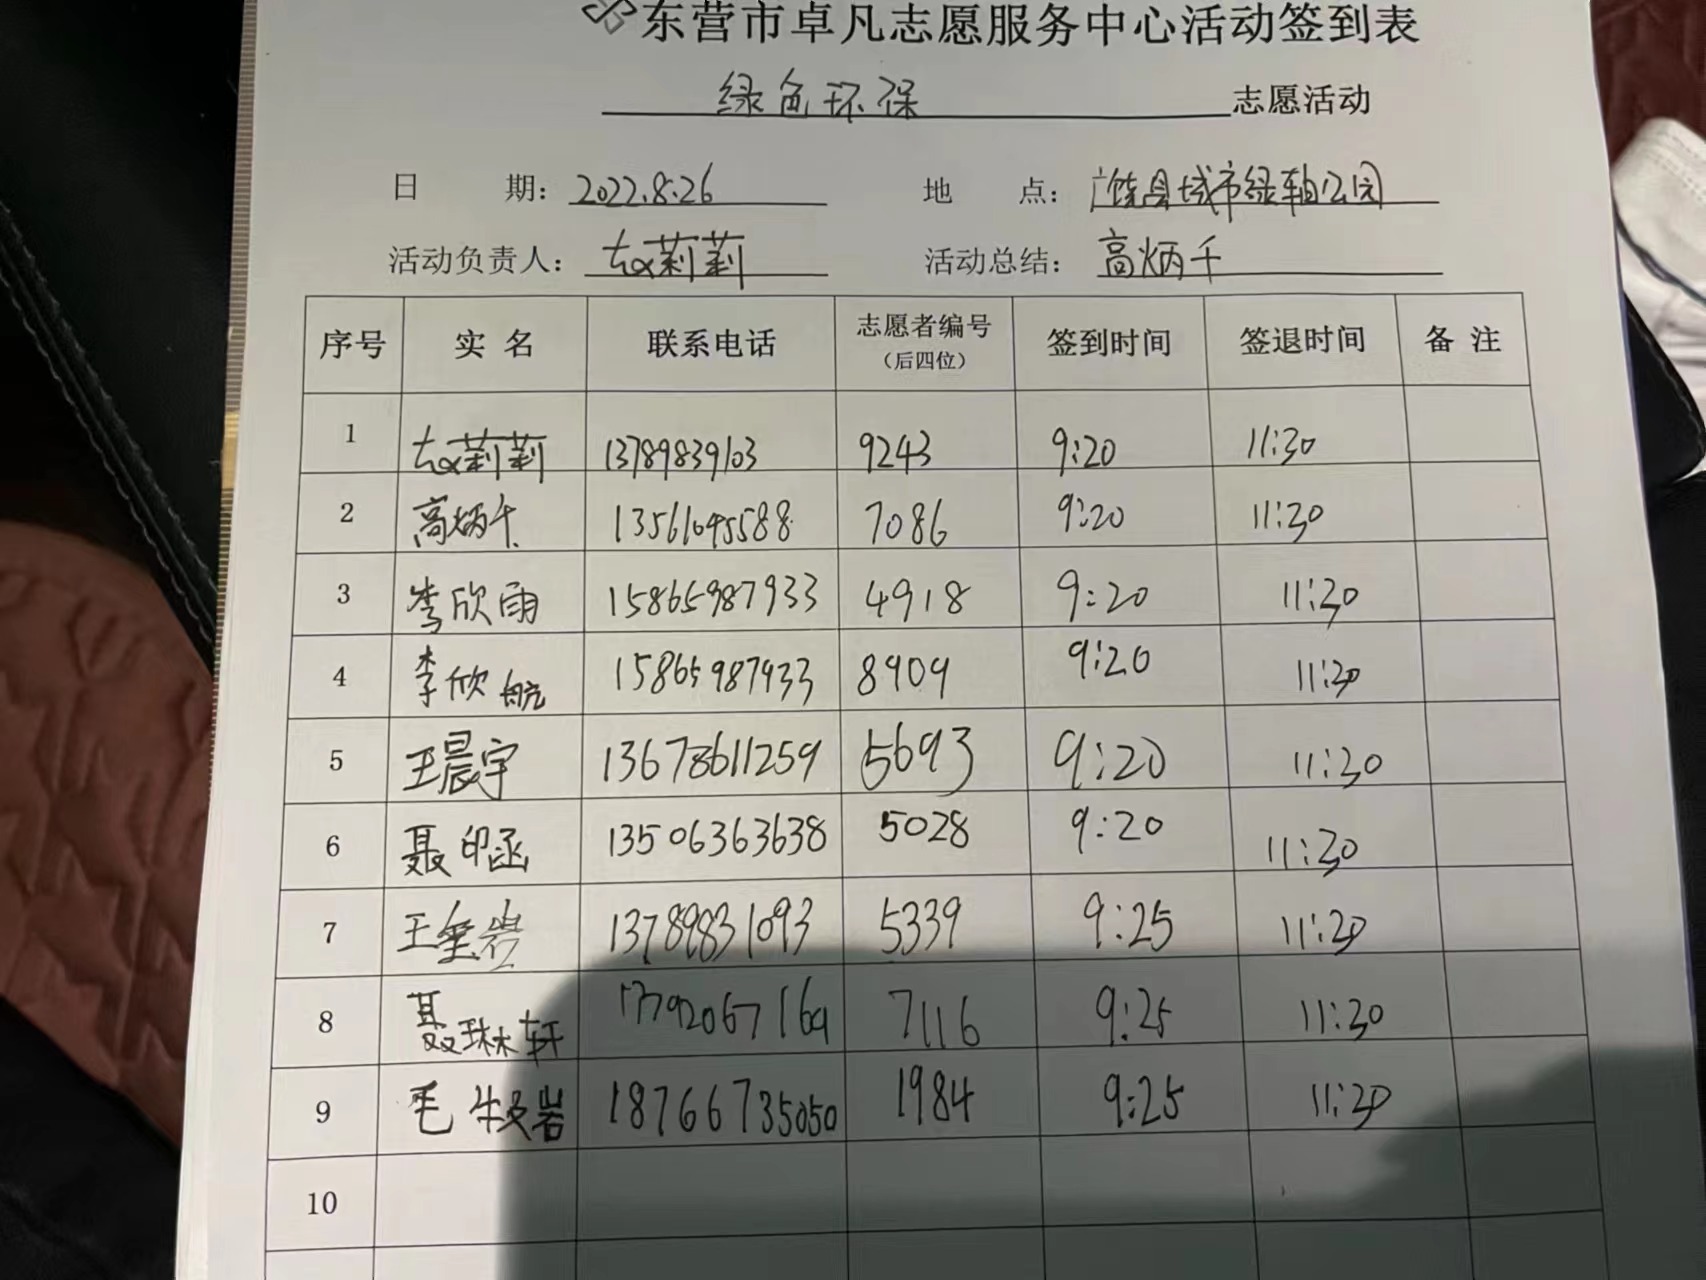 东营市卓凡志愿服务中心活动签到表
绿色环保 志愿活动
日 期: 2022.8.26 地 点: 广饶县城市绿轴公园
活动负责人: 赵莉莉 活动总结: 高炳千
序号 实名 联系电话 志愿者编号(后四位) 签到时间 签退时间 备注
1 赵莉莉 13789839103 9243 9:20 11:30
2 高炳千 13561045588 7086 9:20 11:30
3 李欣雨 15865987933 4918 9:20 11:30
4 李欣航 15865987933 8909 9:20 11:30
5 王晨宇 13678611259 5693 9:20 11:30
6 聂印函 13506363638 5028 9:20 11:30
7 王 岩 13789831093 5339 9:25 11:30
8 聂琳轩 7116 9:25 11:30
9 毛 岩 18766735050 1984 9:25 11:30
10